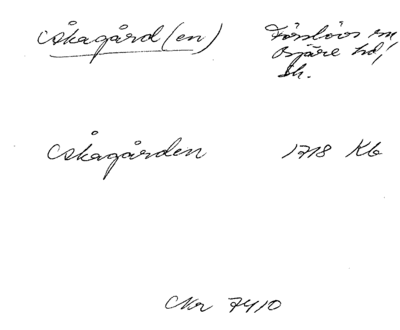 Åkagård(en) Förslövs sn
Bjäre hd,
Sk.
Åkagården 1718 Kb
Ckr 7410